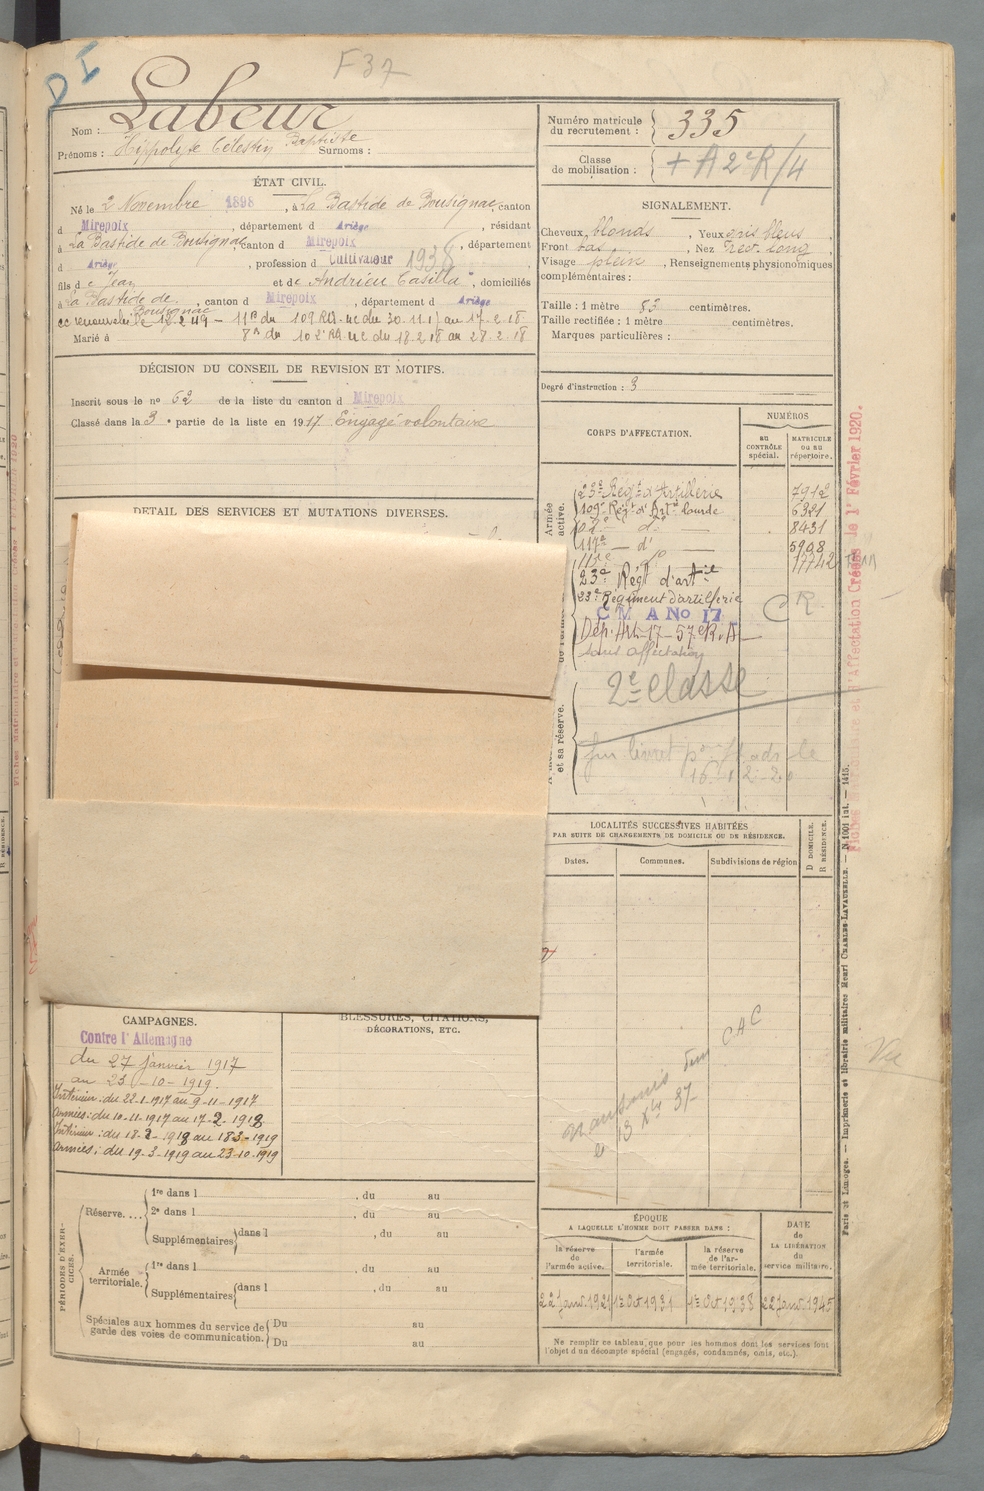 D I
F 37
Nom : Labeur
Prénoms : Hippolyte Célestin Baptiste Surnoms :
Numéro matricule du recrutement : 335
Classe de mobilisation : + A 2e R/4
ÉTAT CIVIL.
Né le 2 Novembre 1898, à La Bastide de Bousignac, canton
d Mirepoix, département d Ariège, résidant
à La Bastide de Bousignac canton d Mirepoix, département
d Ariège, profession d Cultivateur 1938
fils de Jean et de Andrieu Casilda, domiciliés
à La Bastide de Bousignac, canton d Mirepoix, département d Ariège
le 18.2.49 — 11e du 109 RA. du 30.11.17 au 17.2.18
Marié à 8e du 102e RA du 18.2.18 au 28.2.18
SIGNALEMENT.
Cheveux blonds, Yeux gris bleus
Front bas, Nez rect. long
Visage plein, Renseignements physionomiques
complémentaires :
Taille : 1 mètre 83 centimètres.
Taille rectifiée : 1 mètre centimètres.
Marques particulières :
Degré d'instruction : 3
DÉCISION DU CONSEIL DE REVISION ET MOTIFS.
Inscrit sous le no 62 de la liste du canton d Mirepoix
Classé dans la 3e partie de la liste en 1917 Engagé volontaire
DETAIL DES SERVICES ET MUTATIONS DIVERSES.
CORPS D'AFFECTATION.
NUMÉROS
au CONTRÔLE spécial.
MATRICULE ou au répertoire.
Armée active.
23e Régt d'Artillerie 7912
109e Régt d'Arte lourde 6321
102e — do — 8431
117e — do — 5908
115e — do 17742
23e Régt d'artie
23e Régiment d'artillerie
C M A No 17 CR
Dép. Art. 17 — 57e R.A —
sans affectation
et sa réserve.
2e classe
livret
16
Fiches Matricules et d'Affectation Créées le 1er Février 1920.
LOCALITÉS SUCCESSIVES HABITÉES
PAR SUITE DE CHANGEMENTS DE DOMICILE OU DE RÉSIDENCE.
Dates.
Communes.
Subdivisions de région
D DOMICILE.
R RÉSIDENCE.
CAC
Vu
CAMPAGNES.
Contre l'Allemagne
du 27 janvier 1917
au 23 - 10 - 1919.
Intérieur : du 22-1-1917 au 9-11-1917
Armées : du 10-11-1917 au 17-2-1918
Intérieur : du 18-2-1918 au 18-3-1919
Armées : du 19-3-1919 au 23-10-1919
BLESSURES, CITATIONS,
DÉCORATIONS, ETC.
PÉRIODES D'EXERCICES.
Réserve....
1re dans l , du au
2e dans l , du au
Supplémentaires dans l , du au
Armée territoriale.
1re dans l , du au
Supplémentaires dans l , du au
Spéciales aux hommes du service de garde des voies de communication.
Du au
Du au
ÉPOQUE
A LAQUELLE L'HOMME DOIT PASSER DANS :
la réserve de l'armée active.
l'armée territoriale.
la réserve de l'armée territoriale.
DATE de LA LIBÉRATION du service militaire.
22 Janv. 1921
1er Oct 1931
1er Oct 1938
22 Janv. 1945
Ne remplir ce tableau que pour les hommes dont les services font
l'objet d'un décompte spécial (engagés, condamnés, omis, etc.).
Paris et Limoges. — Imprimerie et librairie militaires Henri CHARLES-LAVAUZELLE. — N. 1001 int. — 1415.